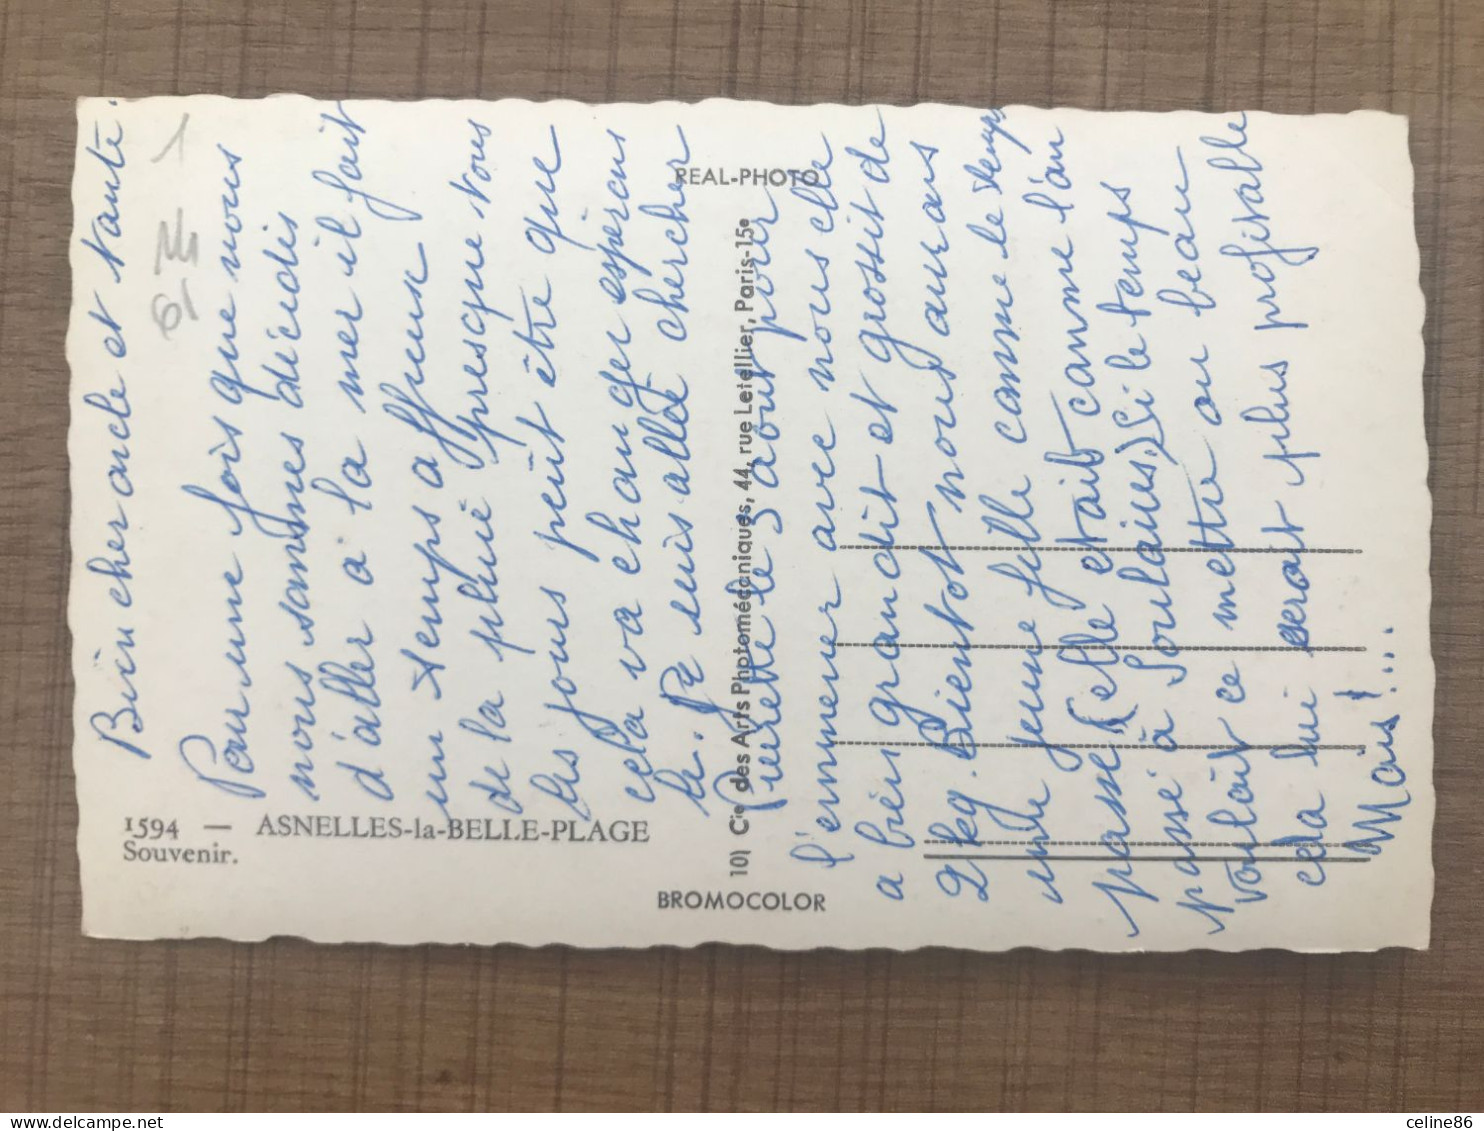 Bien cher oncle et tante.
Pour une fois que nous
nous sommes décidis
d'aller a la mer il fait
un temps affreux
de la pluie presque tous
les jours peut être que
cela va changer espèrons
le. Je suis allée chercher
le 3 aout pour
l'emmener avec nous elle
a bien grandit et grossit de
2 kg. Bientot nous aurons
une jeune fille comme le temps
passe (elle etait comme l'an
passé à Soulains) Si le temps
voulait ce mettre au beau
cela lui serait plus profitable
Mais!...
1594 — ASNELLES-la-BELLE-PLAGE
Souvenir.
REAL-PHOTO
10) Cie des Arts Photomécaniques, 44, rue Letellier, Paris-15e
BROMOCOLOR
1
celine86